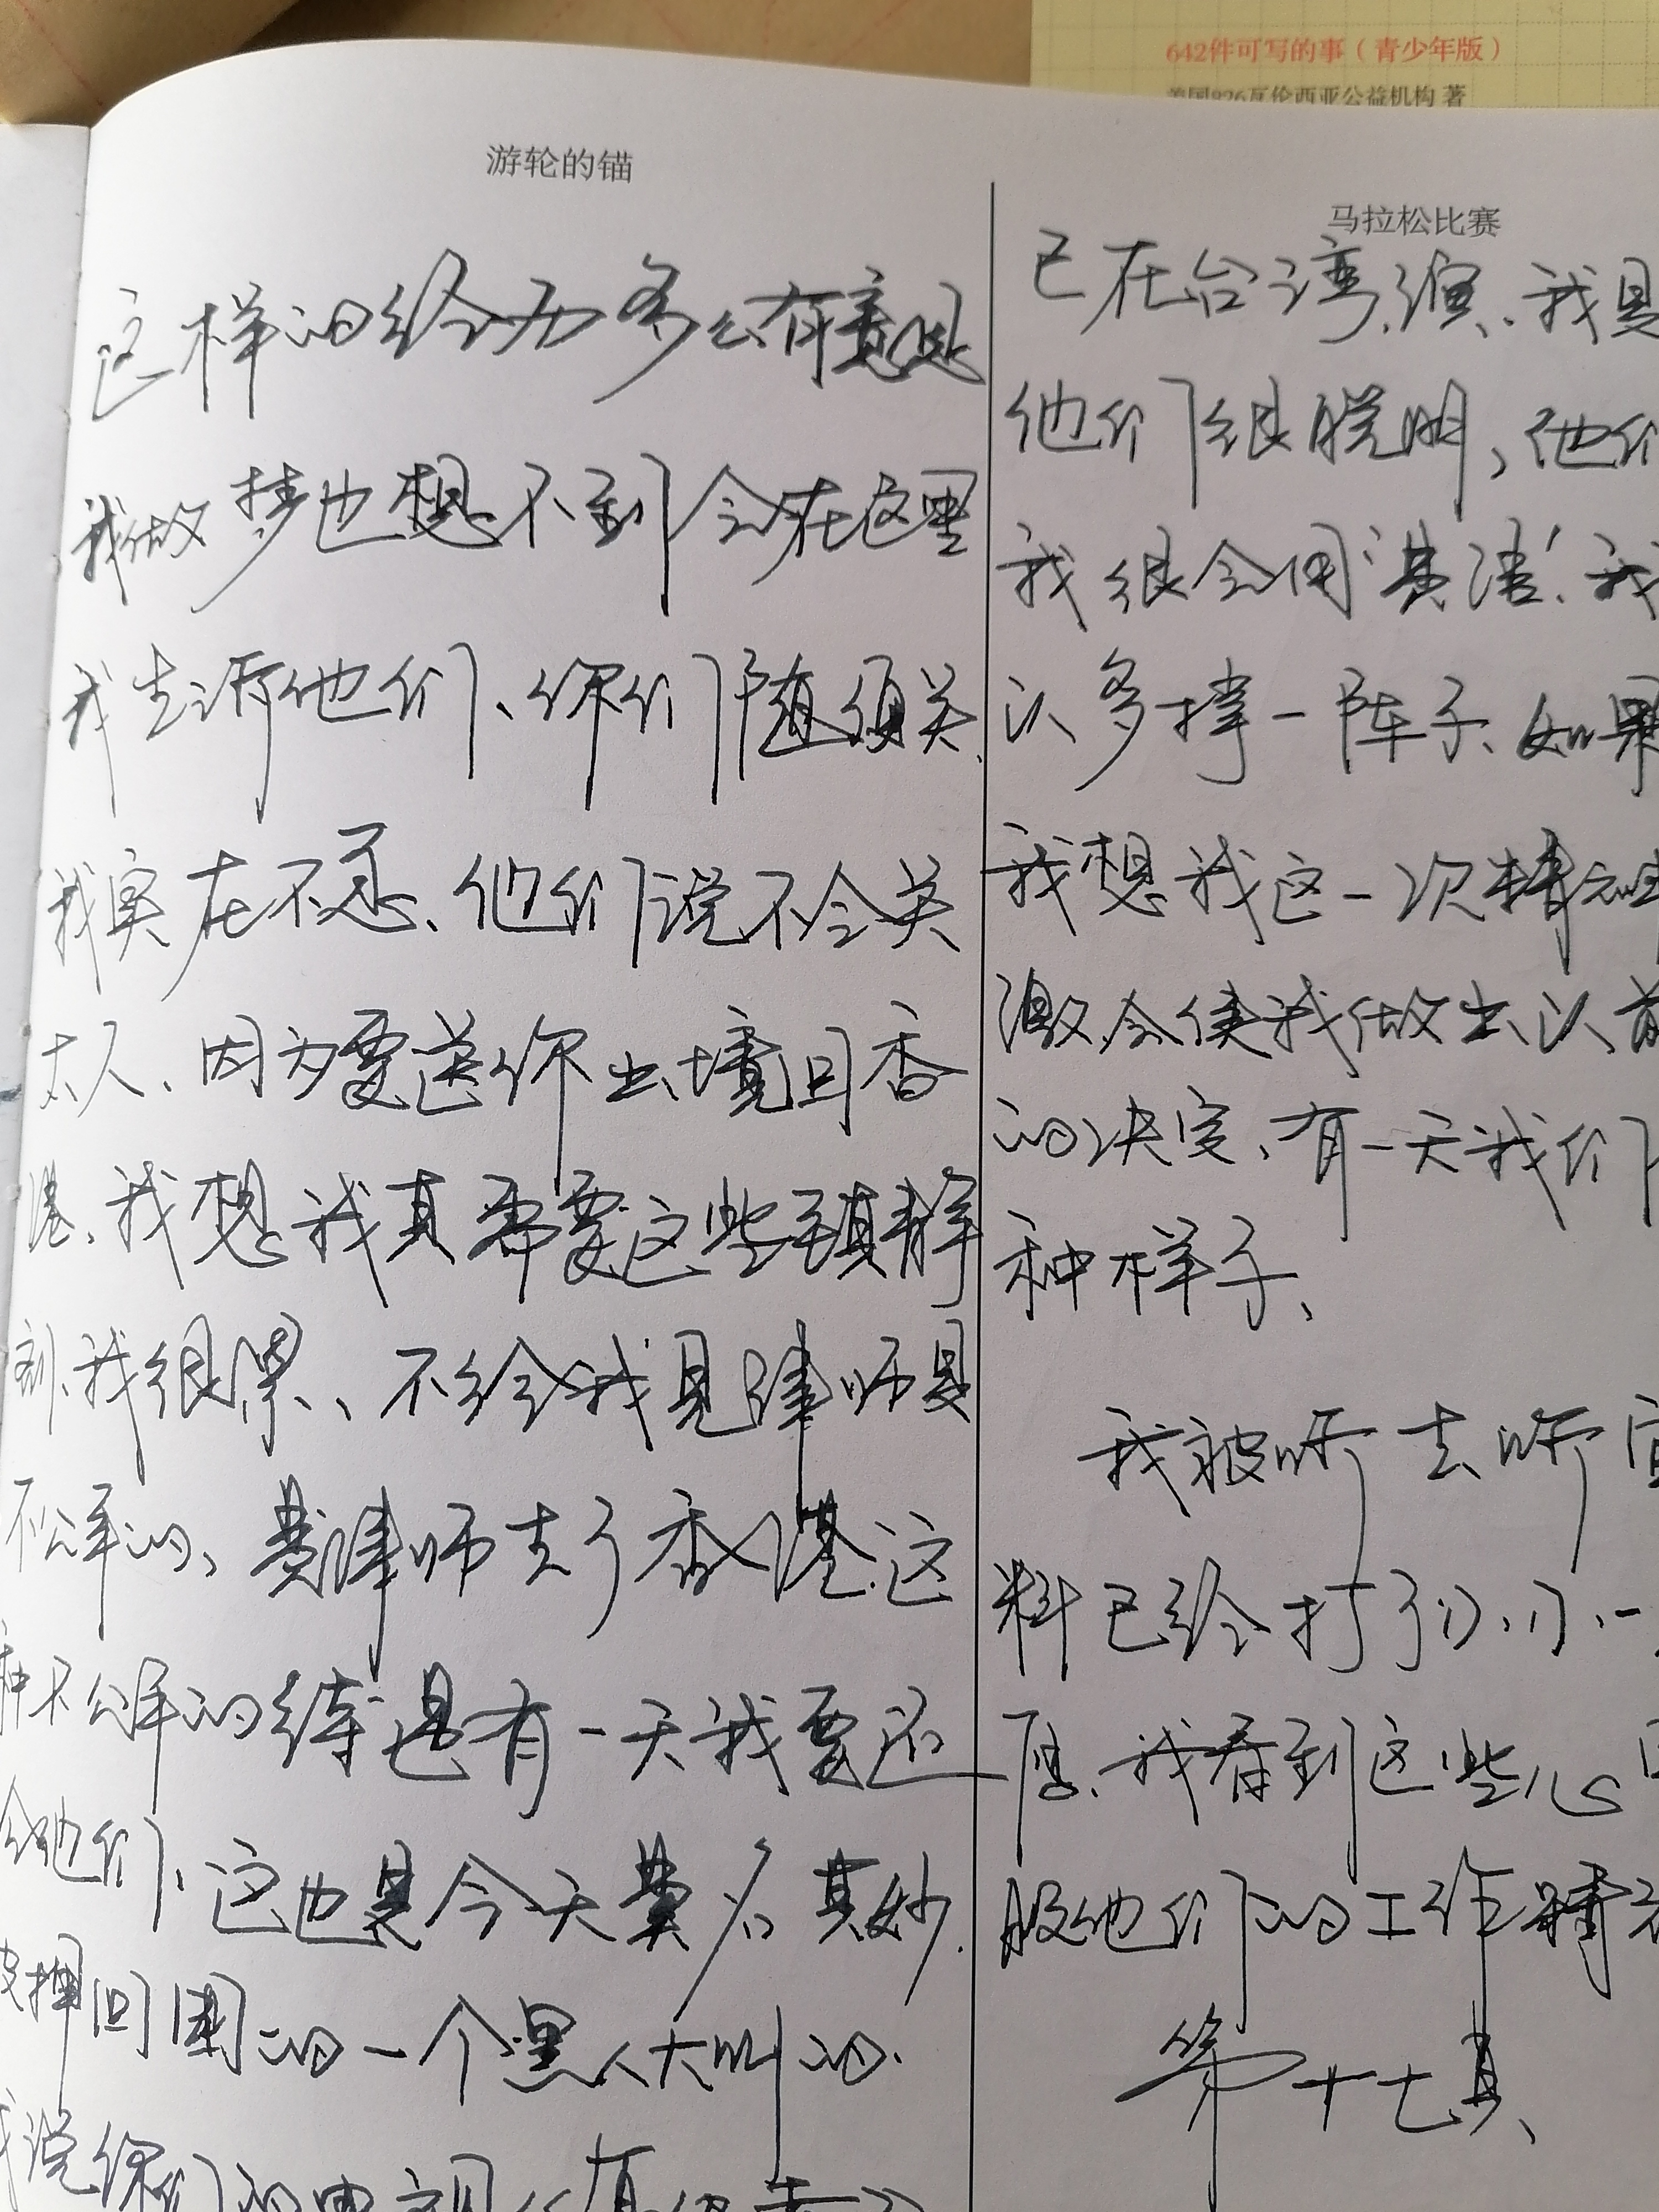 642件可写的事（青少年版）
美国826瓦伦西亚公益机构 著
游轮的锚
这样的经历多么有意思
我做梦也想不到会在这里
我告诉他们、你们随便关、
我实在不怎、他们说不会关
太久、因为要送你出境回香
港、我想我真需要这些镇静
剂、我很累、不给我见律师是
不公平的、黄律师去了香港.这
种不公平的待遇有一天我要还
给他们、这也是今天莫名其妙.
被押回国的一个黑人大叫的.
我说你们的
马拉松比赛
已在台湾.演、我是
他们很聪明，他们
我很会用“英语”.我
以多撑一阵子、如果
我想我这一次精神
激会使我做出以前
的决定、有一天我们
种样子、
我被吓去吓
料已给打了
愿、我看到这些心
服他们的工作精神
第十七页、